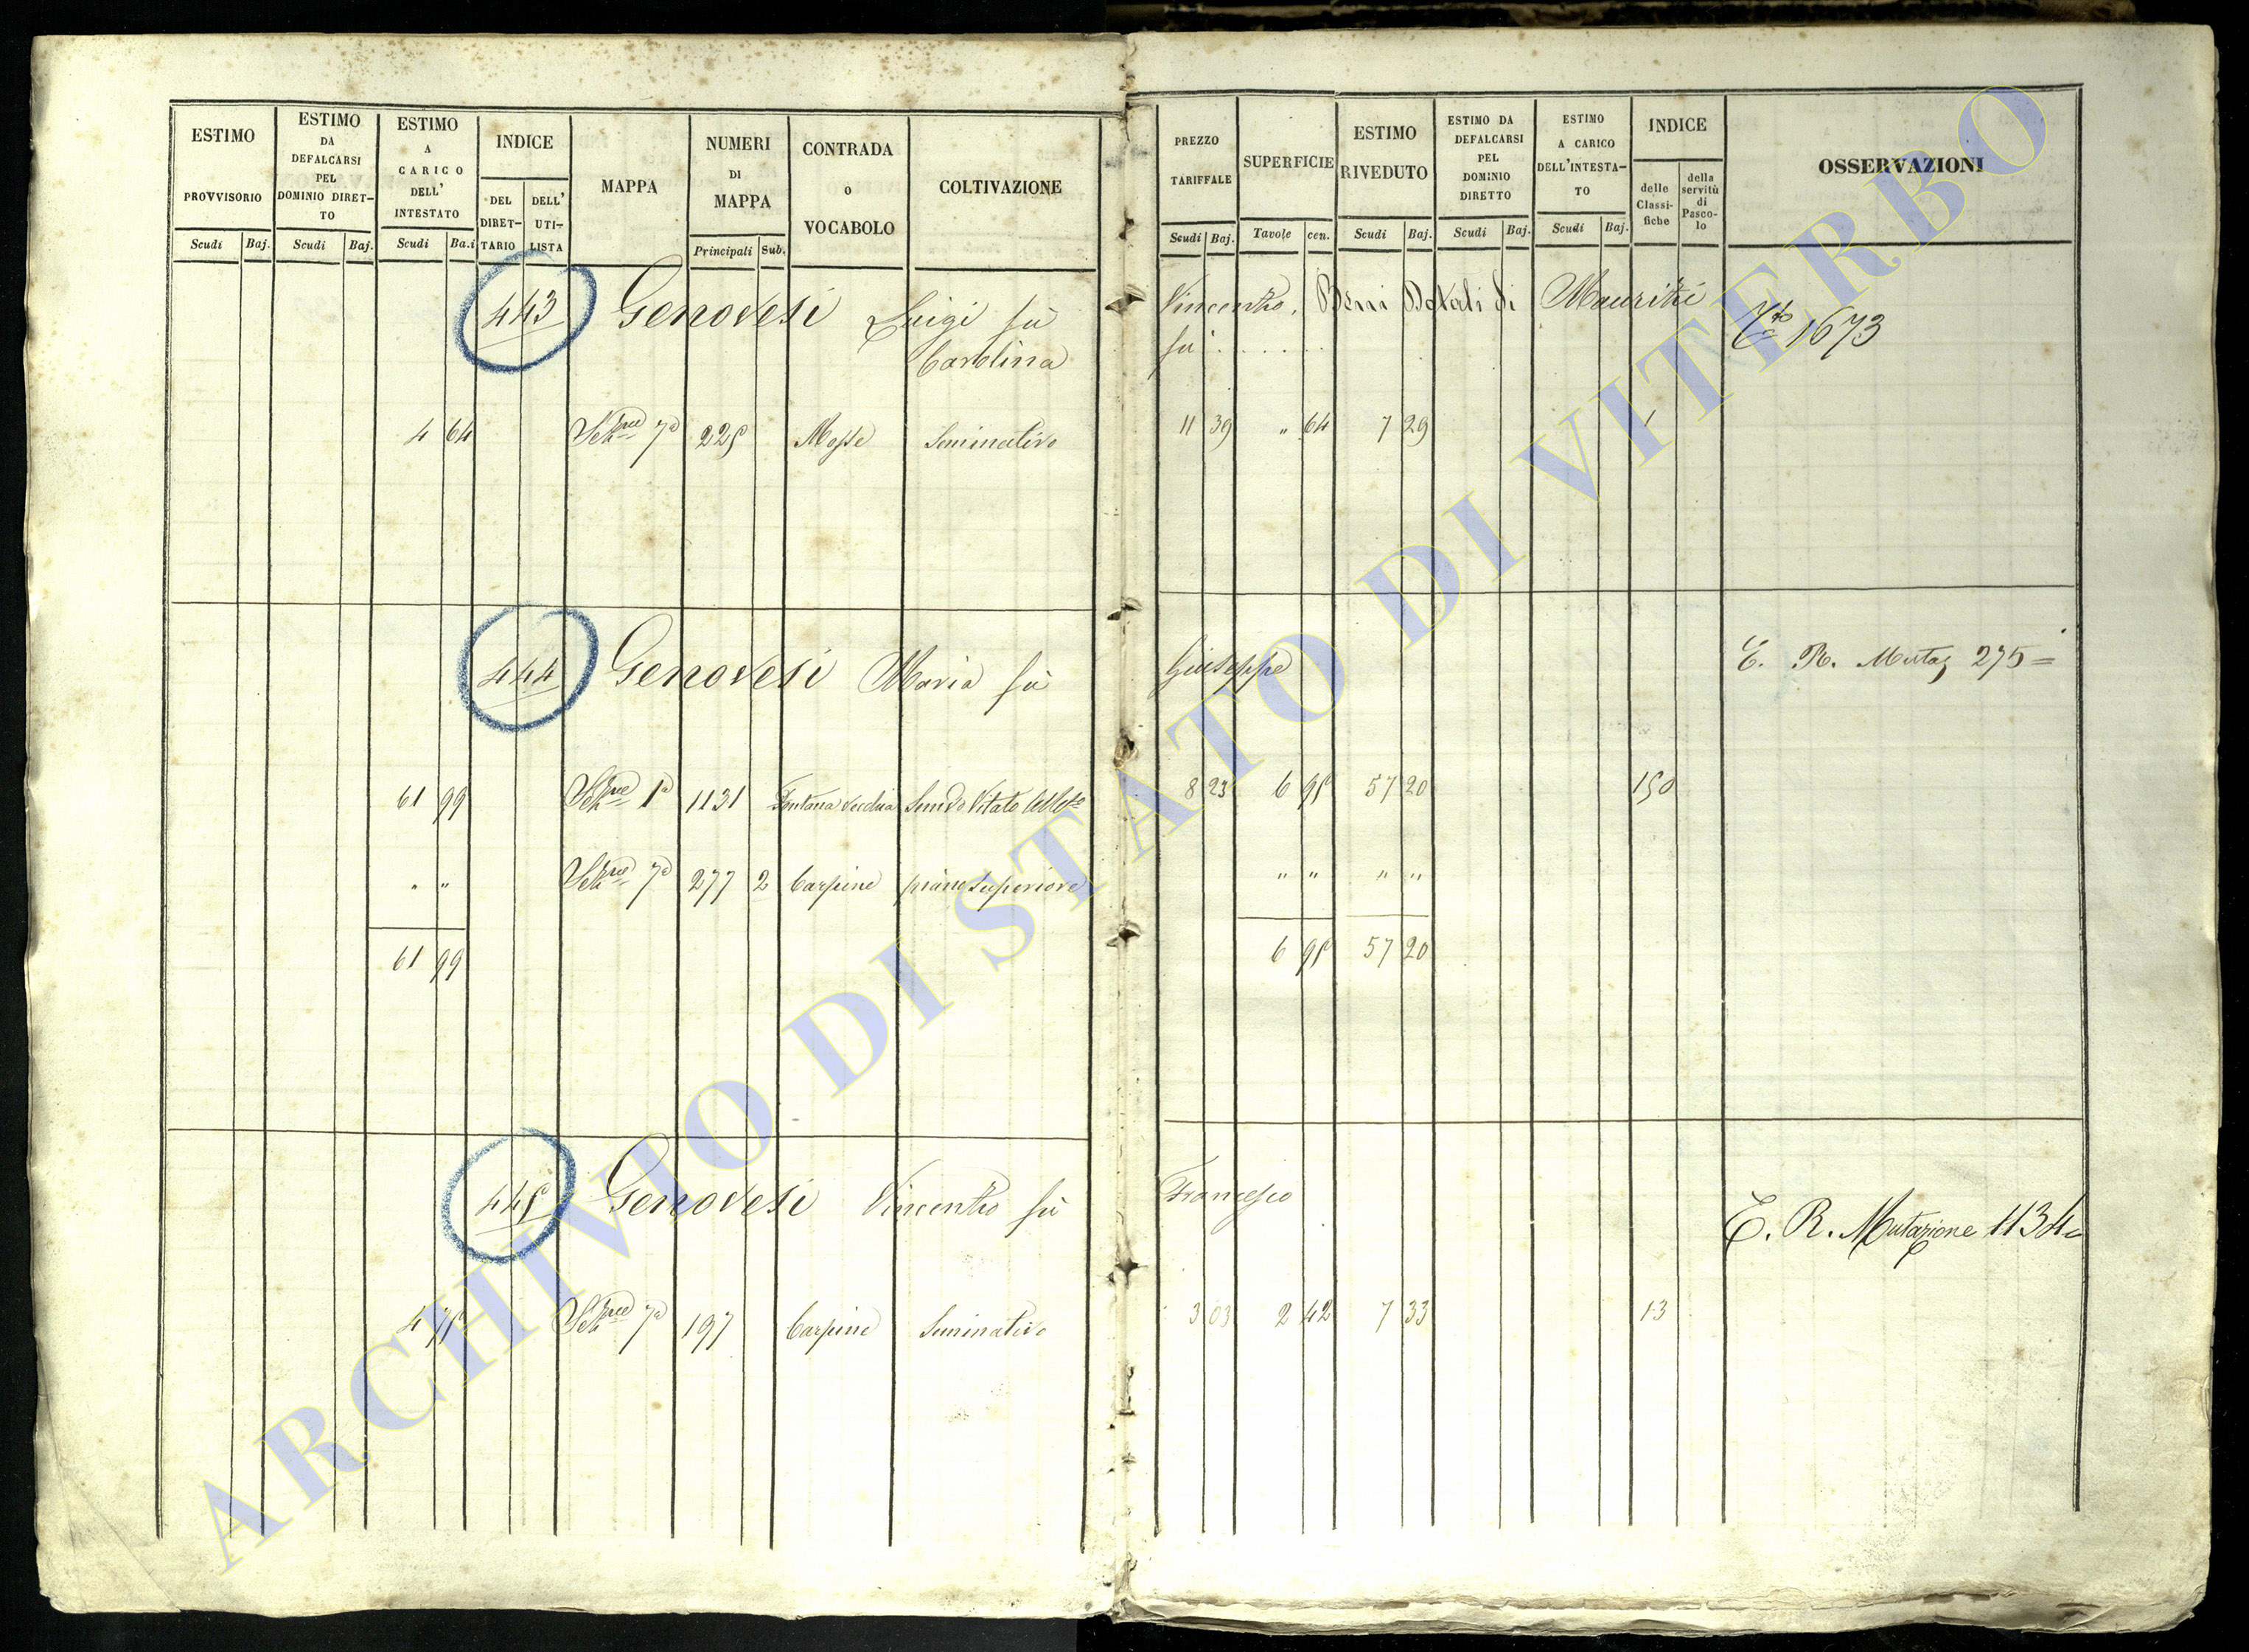 ESTIMO PROVVISORIO
ESTIMO DA DEFALCARSI PEL DOMINIO DIRET-TO
ESTIMO A CARICO DELL' INTESTATO
INDICE
DEL DIRET-TARIO
DELL' UTI-LISTA
MAPPA
NUMERI DI MAPPA
CONTRADA o VOCABOLO
COLTIVAZIONE
PREZZO TARIFFALE
SUPERFICIE
ESTIMO RIVEDUTO
ESTIMO DA DEFALCARSI PEL DOMINIO DIRETTO
ESTIMO A CARICO DELL'INTESTA-TO
INDICE
delle Classi-fiche
della servitù di Pasco-lo
OSSERVAZIONI
Scudi Baj. Scudi Baj. Scudi Ba.i Principali Sub. Scudi Baj. Tavole cen. Scudi Baj. Scudi Baj. Scudi Baj.
443 Genovesi Luigi fù Vincenzo. Beni Dotali di Maurizi
Carolina fù . . . . . . 1673
4 64 7a 225 Mosse Seminativo 11 39 " 64 7 29 1
444 Genovesi Maria fù Giuseppe E. R. Mutaz 275 =
61 99 1a 1131 Fontana vecchia Vitato 8 23 6 95 57 20 150
" " 7a 277 2 Carpine piano superiore " " " "
61 99 6 95 57 20
445 Genovesi Vincenzo fù Francesco E. R. Mutazione 1134
4 75 7a 197 Carpine Seminativo 3 03 2 42 7 33 13
ARCHIVIO DI STATO DI VITERBO